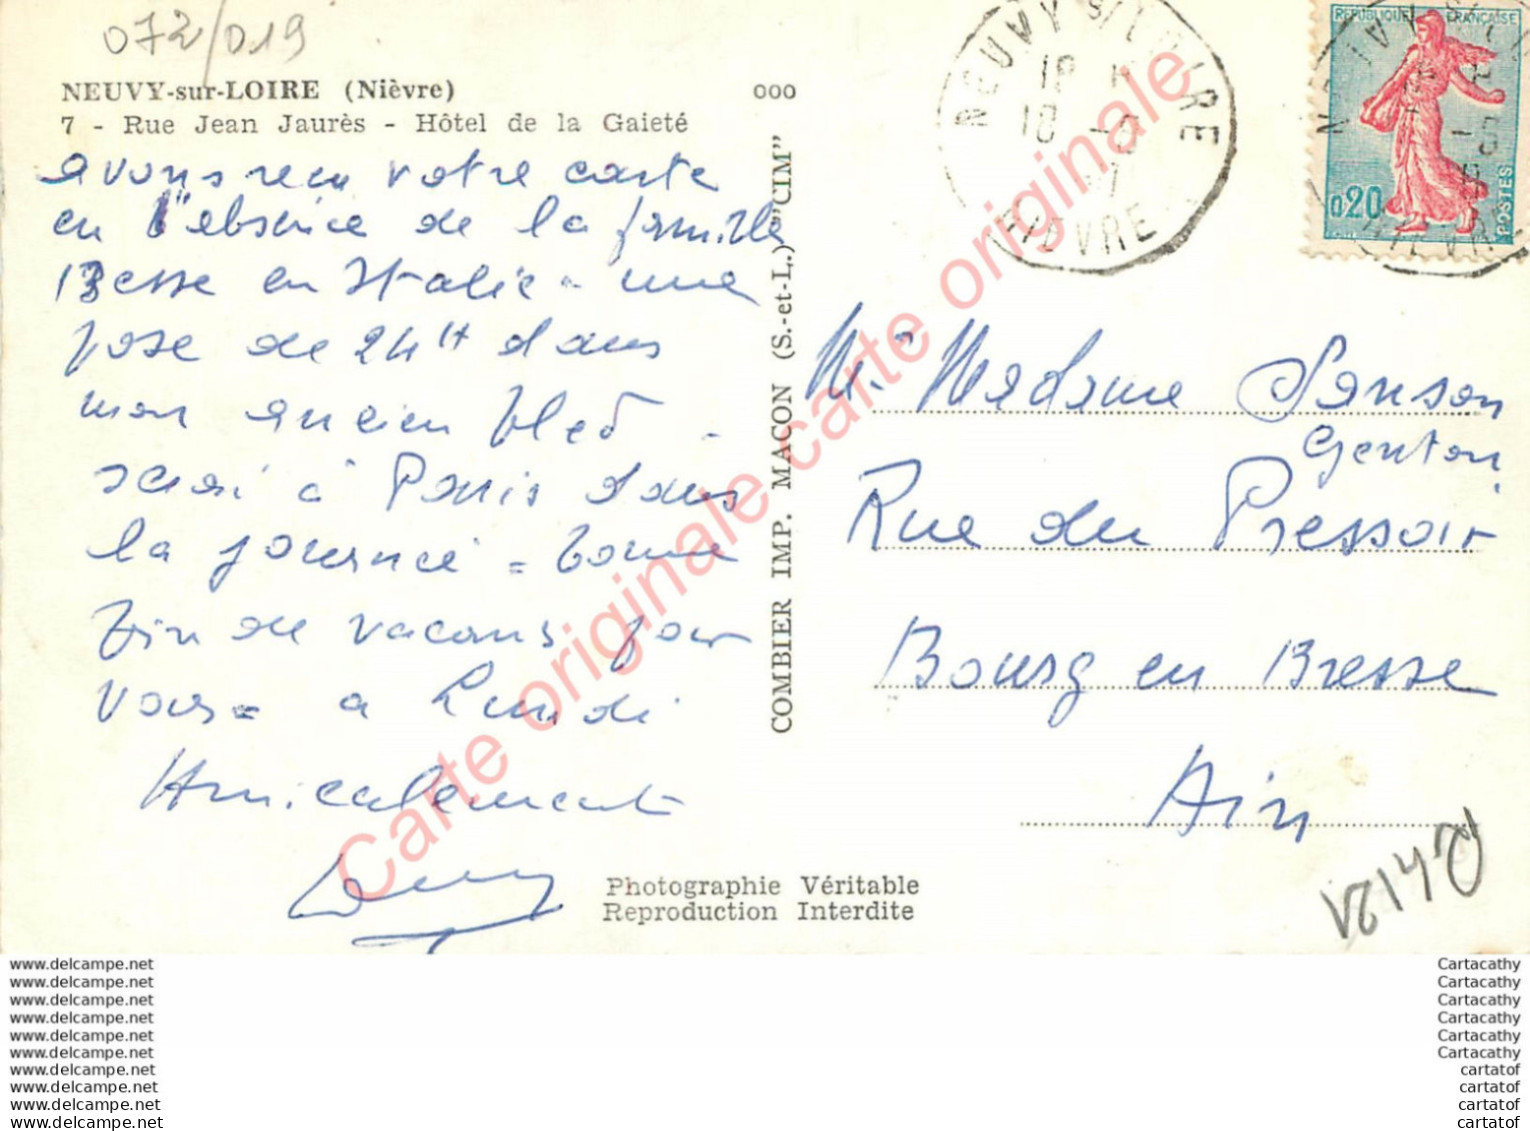 072/019
NEUVY-sur-LOIRE (Nièvre)
7 - Rue Jean Jaurès - Hôtel de la Gaieté
ooo
avons reçu votre carte
en l'absence de la famille
Besse en Italie - une
pose de 24 H dans
mon ancien bled -
serai à Paris dans
la journée = bonne
fin de vacans pour
vous = a Lundi
Amicalement
COMBIER IMP. MACON (S.-et-L.) "CIM"
NEUVY S/LOIRE
18 H
10 -5
NIEVRE
REPUBLIQUE FRANÇAISE
0,20
POSTES
Mr Madame Sanson
Genton
Rue du Pressoir
Bourg en Bresse
Ain
Photographie Véritable
Reproduction Interdite
Carte originale carte originale carte originale
www.delcampe.net
www.delcampe.net
www.delcampe.net
www.delcampe.net
www.delcampe.net
www.delcampe.net
www.delcampe.net
www.delcampe.net
www.delcampe.net
www.delcampe.net
Cartacathy
Cartacathy
Cartacathy
Cartacathy
Cartacathy
Cartacathy
cartatof
cartatof
cartatof
cartatof